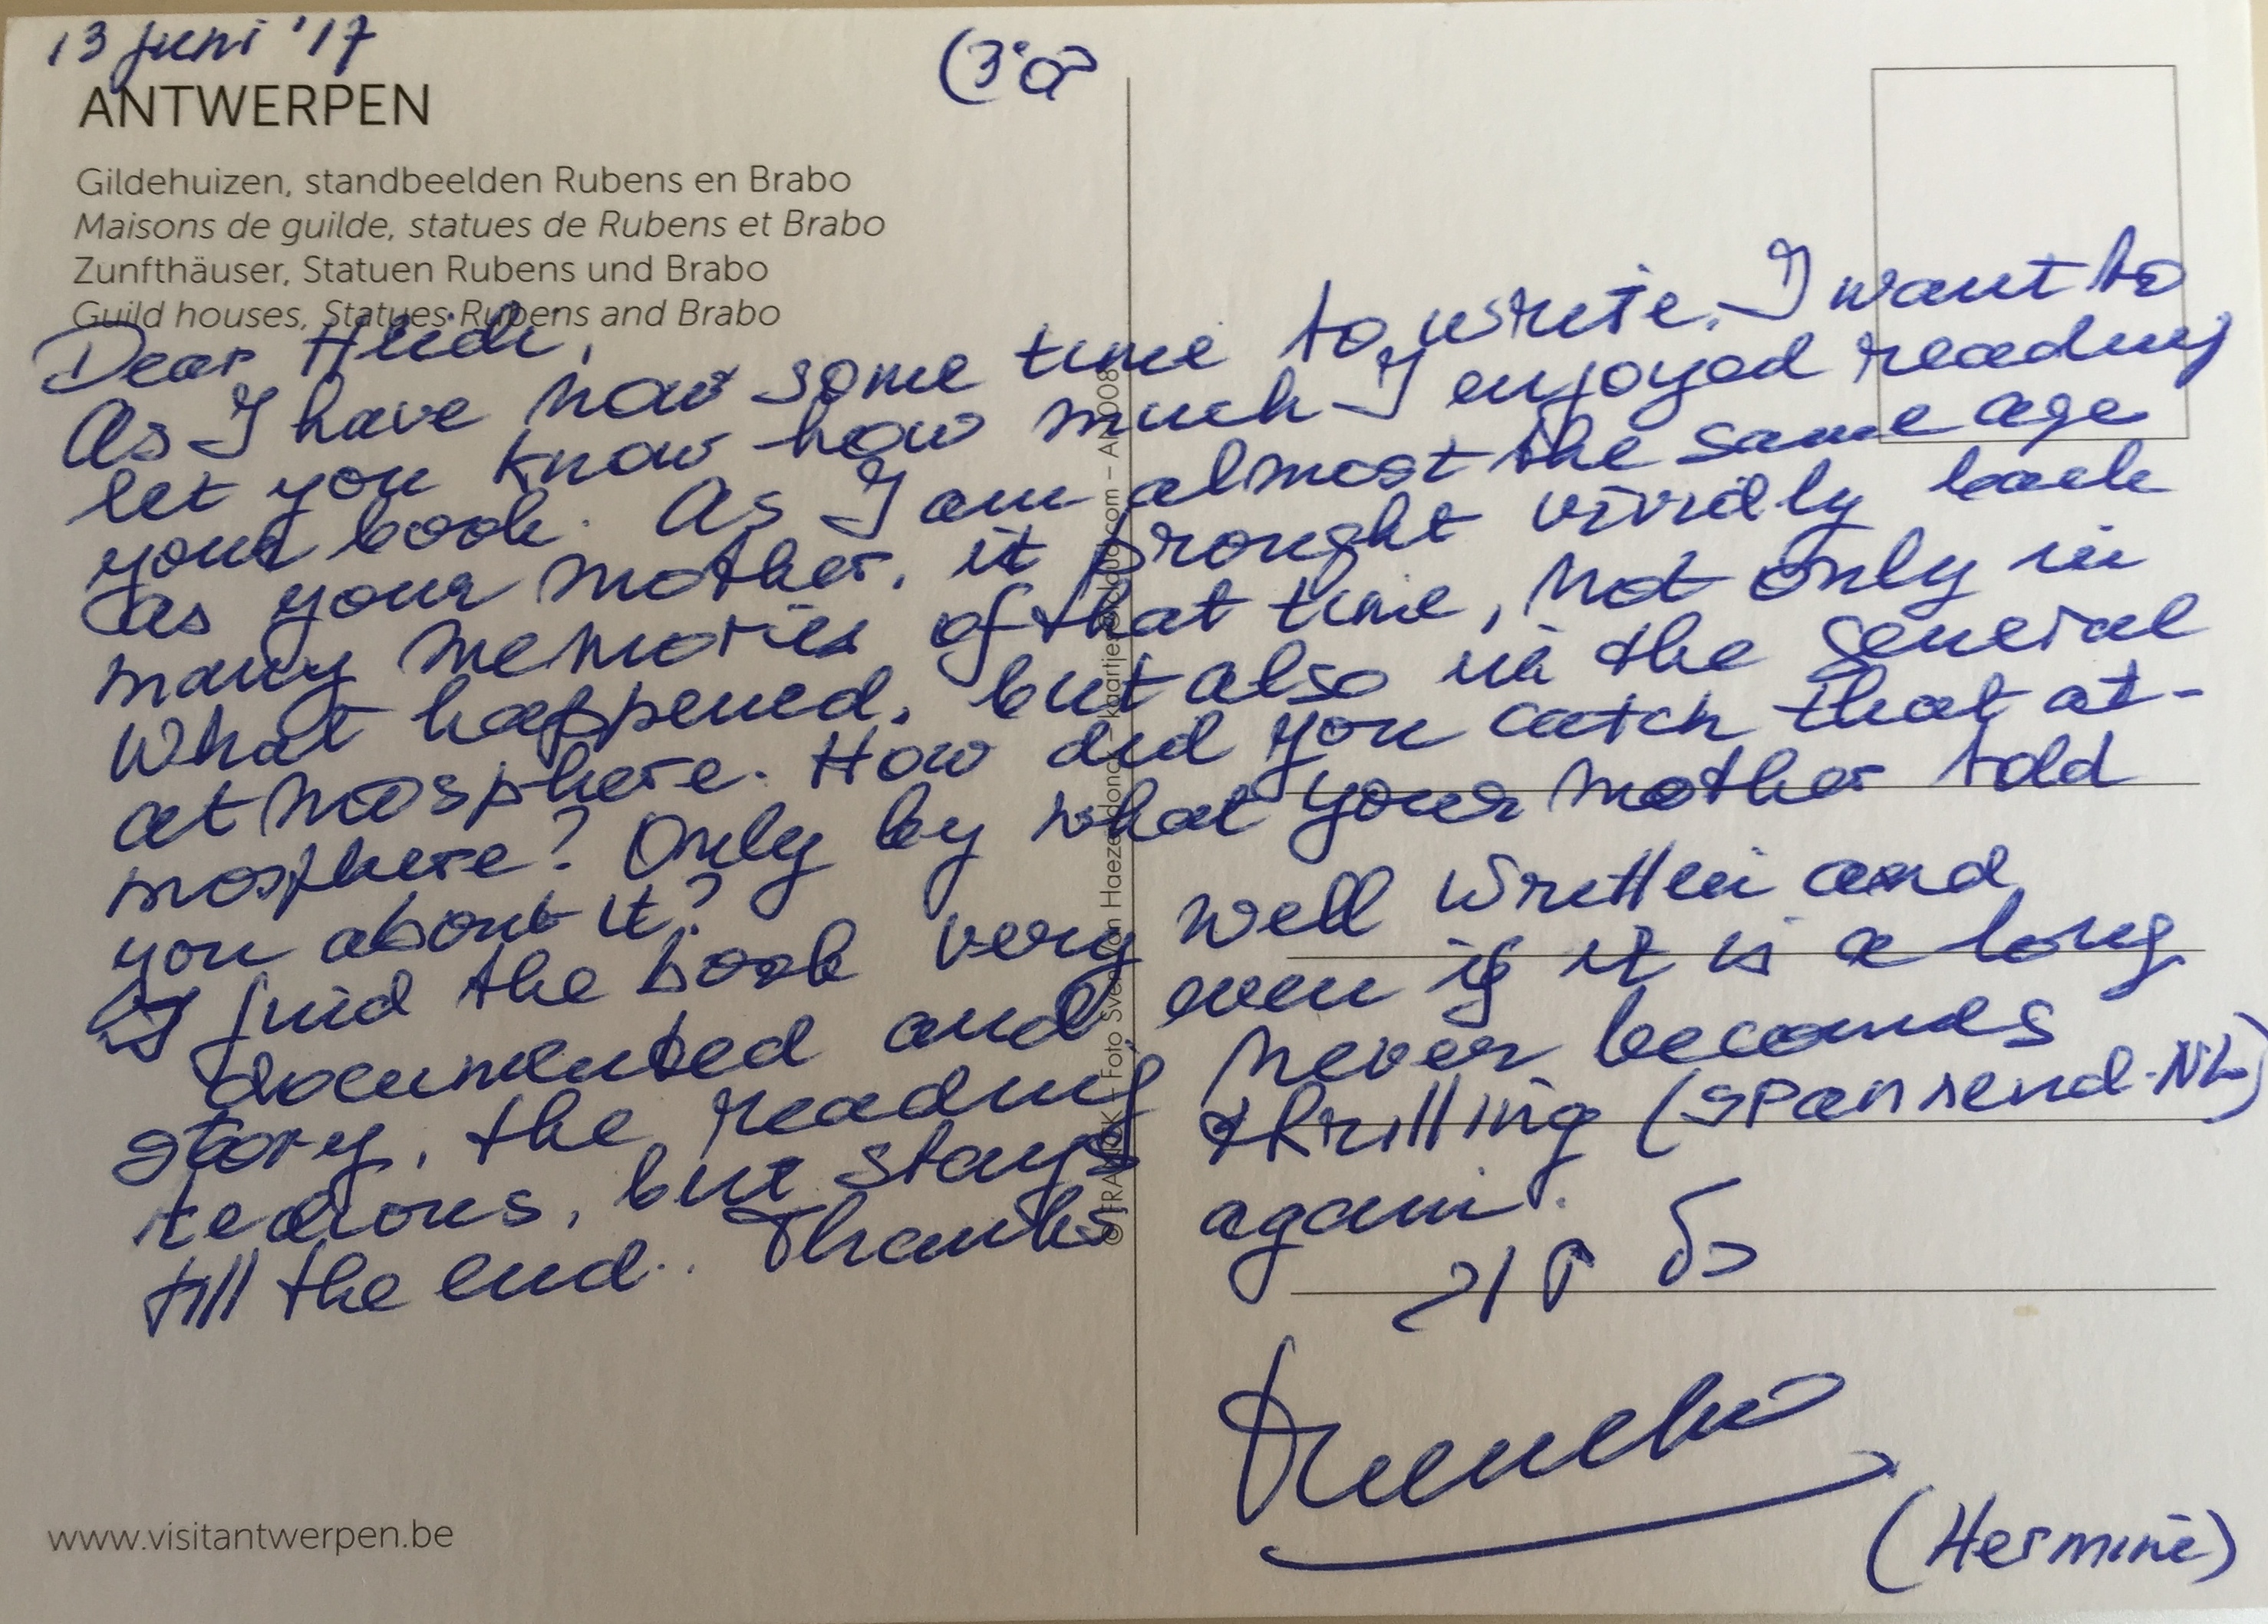 13 juni '17
ANTWERPEN
Gildehuizen, standbeelden Rubens en Brabo
Maisons de guilde, statues de Rubens et Brabo
Zunfthäuser, Statuen Rubens und Brabo
Guild houses, Statues Rubens and Brabo
Dear Heidi,
As I have now some time to write, I want to
let you know how much I enjoyed reading
your book. As I am almost the same age
as your mother, it prought vividly back
many memories of that time, not only in
what happened, but also in the general
atmosphere. How did you catch that at-
mosphere? Only by what your mother told
you about it?
I find the book very well written and
documented and, even if it is a long
story, the reading never becomes
tedious, but stays thrilling (spannend-NL)
till the end. Thanks again.
(Hermine)
www.visitantwerpen.be